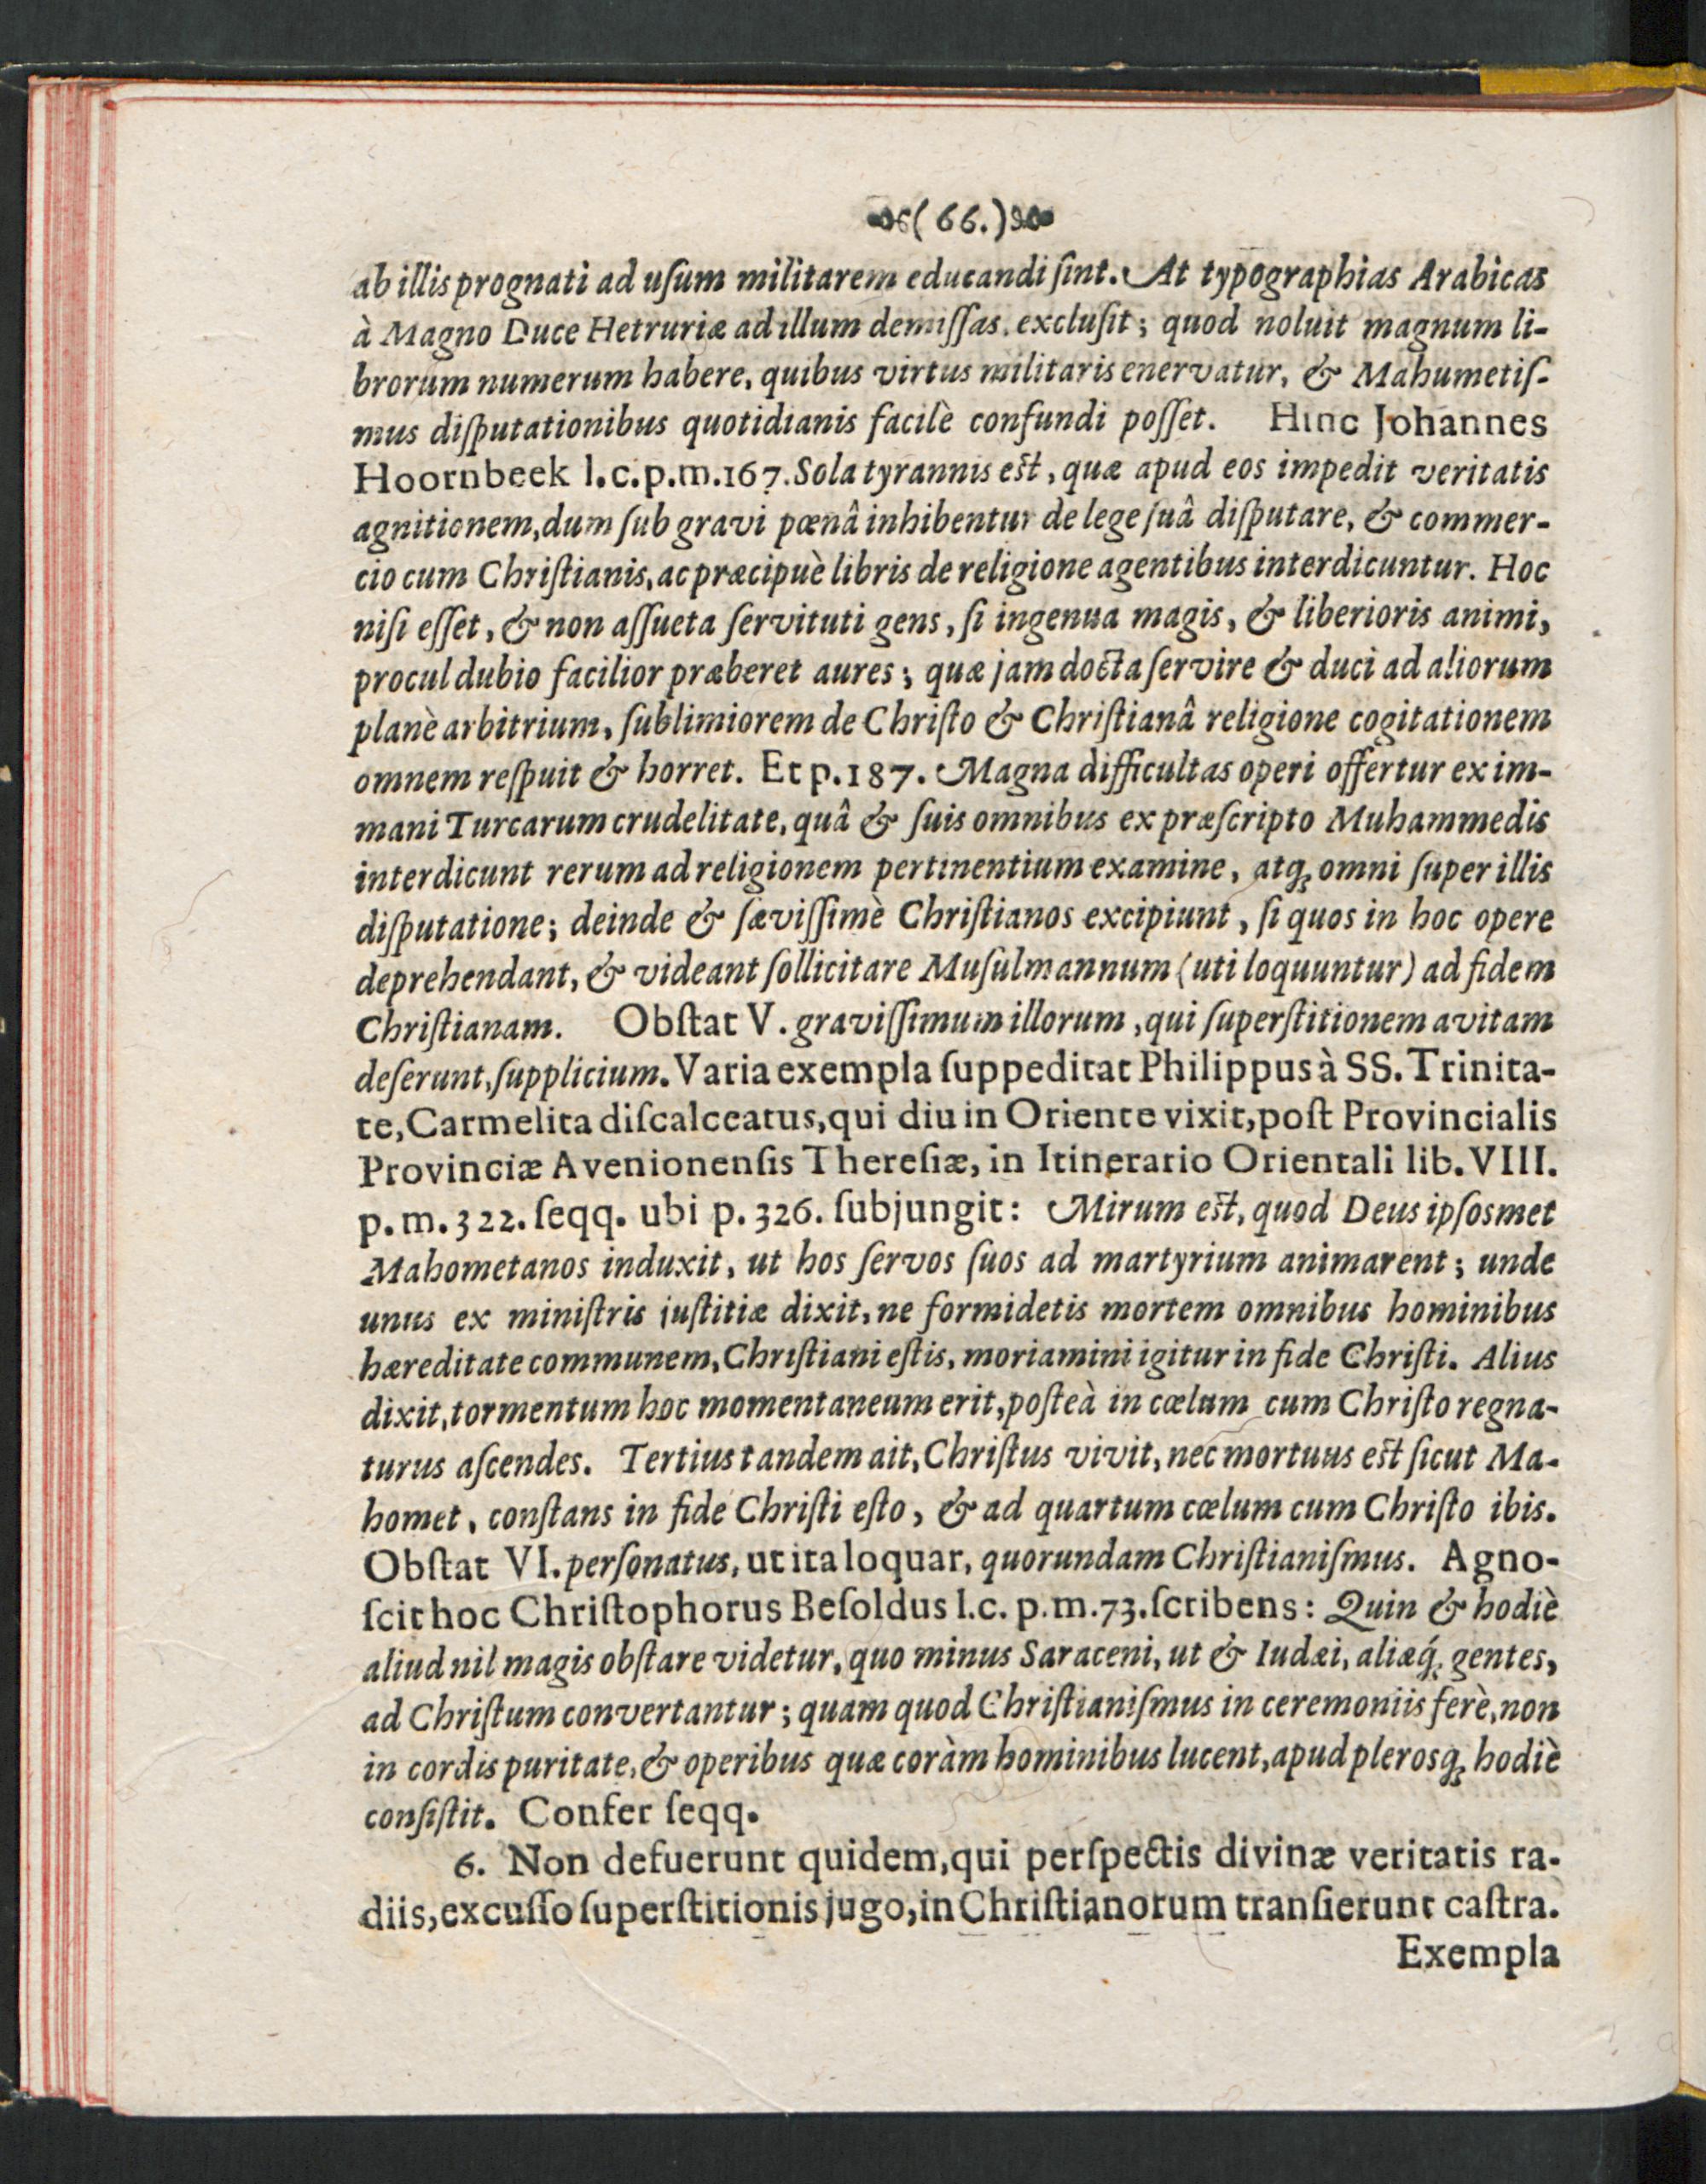 (66.)
ab illis prognati ad uſum militarem educandi ſint. At typographias Arabicas
à Magno Duce Hetruriæ ad illum demiſſas, excluſit; quod noluit magnum li-
brorum numerum habere, quibus virtus militaris enervatur, & Mahumetiſ-
mus diſputationibus quotidianis facilè confundi poſſet. Hinc Johannes
Hoornbeek l.c.p.m.167. Sola tyrannis eſt, quæ apud eos impedit veritatis
agnitionem, dum ſub gravi pœnâ inhibentur de lege ſuâ diſputare, & commer-
cio cum Chriſtianis, ac præcipuè libris de religione agentibus interdicuntur. Hoc
niſi eſſet, & non aſſueta ſervituti gens, ſi ingenua magis, & liberioris animi,
procul dubio facilior præberet aures; quæ jam docta ſervire & duci ad aliorum
planè arbitrium, ſublimiorem de Chriſto & Chriſtianâ religione cogitationem
omnem reſpuit & horret. Et p.187. Magna difficultas operi offertur ex im-
mani Turcarum crudelitate, quâ & ſuis omnibus ex præſcripto Muhammedis
interdicunt rerum ad religionem pertinentium examine, atq; omni ſuper illis
diſputatione; deinde & ſæviſſimè Chriſtianos excipiunt, ſi quos in hoc opere
deprehendant, & videant ſollicitare Muſulmannum (uti loquuntur) ad fidem
Chriſtianam. Obſtat V. graviſſimum illorum, qui ſuperſtitionem avitam
deſerunt, ſupplicium. Varia exempla ſuppeditat Philippus à SS. Trinita-
te, Carmelita diſcalceatus, qui diu in Oriente vixit, poſt Provincialis
Provinciæ Avenionenſis Thereſiæ, in Itinerario Orientali lib. VIII.
p. m. 322. ſeqq. ubi p. 326. ſubjungit: Mirum eſt, quod Deus ipſosmet
Mahometanos induxit, ut hos ſervos ſuos ad martyrium animarent; unde
unus ex miniſtris juſtitiæ dixit, ne formidetis mortem omnibus hominibus
hæreditate communem, Chriſtiani eſtis, moriamini igitur in fide Chriſti. Alius
dixit, tormentum hoc momentaneum erit, poſteà in cœlum cum Chriſto regna-
turus aſcendes. Tertius tandem ait, Chriſtus vivit, nec mortuus eſt ſicut Ma-
homet, conſtans in fide Chriſti eſto, & ad quartum cœlum cum Chriſto ibis.
Obſtat VI. perſonatus, ut ita loquar, quorundam Chriſtianiſmus. Agno-
ſcit hoc Chriſtophorus Beſoldus l.c. p.m.73. ſcribens: Quin & hodiè
aliud nil magis obſtare videtur, quo minus Saraceni, ut & Iudæi, aliæq́; gentes,
ad Chriſtum convertantur; quam quod Chriſtianiſmus in ceremoniis ferè, non
in cordis puritate, & operibus quæ coràm hominibus lucent, apud plerosq; hodiè
conſiſtit. Confer ſeqq.
6. Non defuerunt quidem, qui perſpectis divinæ veritatis ra-
diis, excuſſo ſuperſtitionis jugo, in Chriſtianorum tranſierunt caſtra.
Exempla